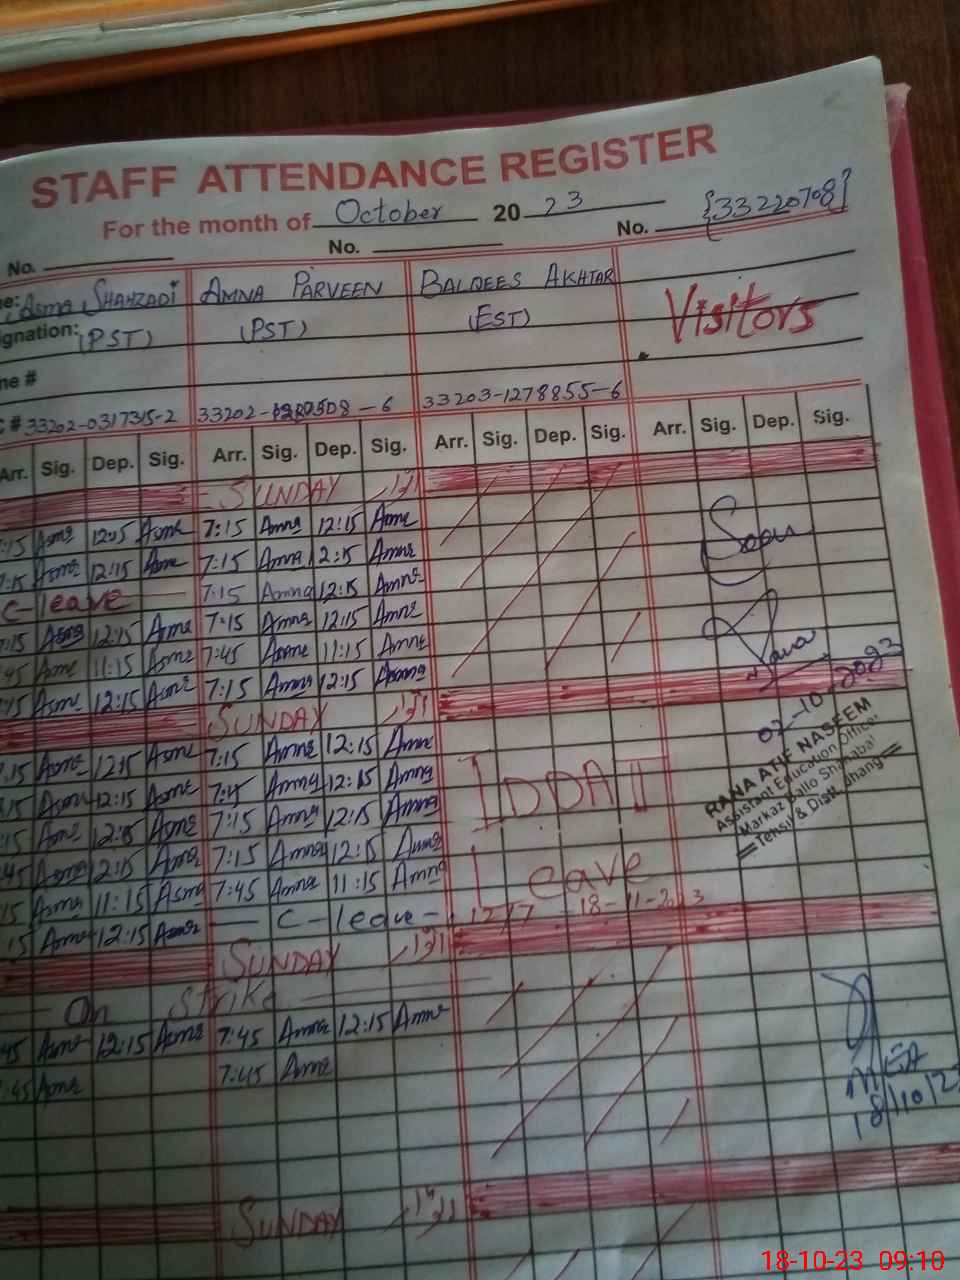 STAFF ATTENDANCE REGISTER
For the month of October 20 23 {33220708}
No. No. No.
Asma Shahzadi AMNA PARVEEN BALQEES AKHTAR Visitors
(PST) (PST) (EST)
33202-0317315-2 33202- -6 33203-1278855-6
Arr. Sig. Dep. Sig. Arr. Sig. Dep. Sig. Arr. Sig. Dep. Sig. Arr. Sig. Dep. Sig.
SUNDAY
:15 Asma 12:15 Asma 7:15 Amna 12:15 Amna
7:15 Asma 12:15 Asma 7:15 Amna 12:15 Amna
C-leave 7:15 Amna 12:15 Amna
7:15 Asma 12:15 Asma 7:15 Amna 12:15 Amna
:45 Asma 11:15 Asma 7:45 Amna 11:15 Amna
:15 Asma 12:15 Asma 7:15 Amna 12:15 Amna
SUNDAY
07-10-2023
RANA ATIF NASEEM
Assistant Education Officer
Markaz Ballo Shahabal
Tehsil & Distt. Jhang
:15 Asma 12:15 Asma 7:15 Amna 12:15 Amna
:15 Asma 12:15 Asma 7:15 Amna 12:15 Amna
:15 Asma 12:15 Asma 7:15 Amna 12:15 Amna
:45 Asma 12:15 Asma 7:15 Amna 12:15 Amna
:15 Asma 11:15 Asma 7:45 Amna 11:15 Amna
:15 Asma 12:15 Asma C-leave
IDDAT
Leave
18-11-2023
SUNDAY
On Strike
:45 Asma 12:15 Asma 7:45 Amna 12:15 Amna
:45 Asma 7:45 Amna
MEA
18/10/23
SUNDAY
18-10-23 09:10